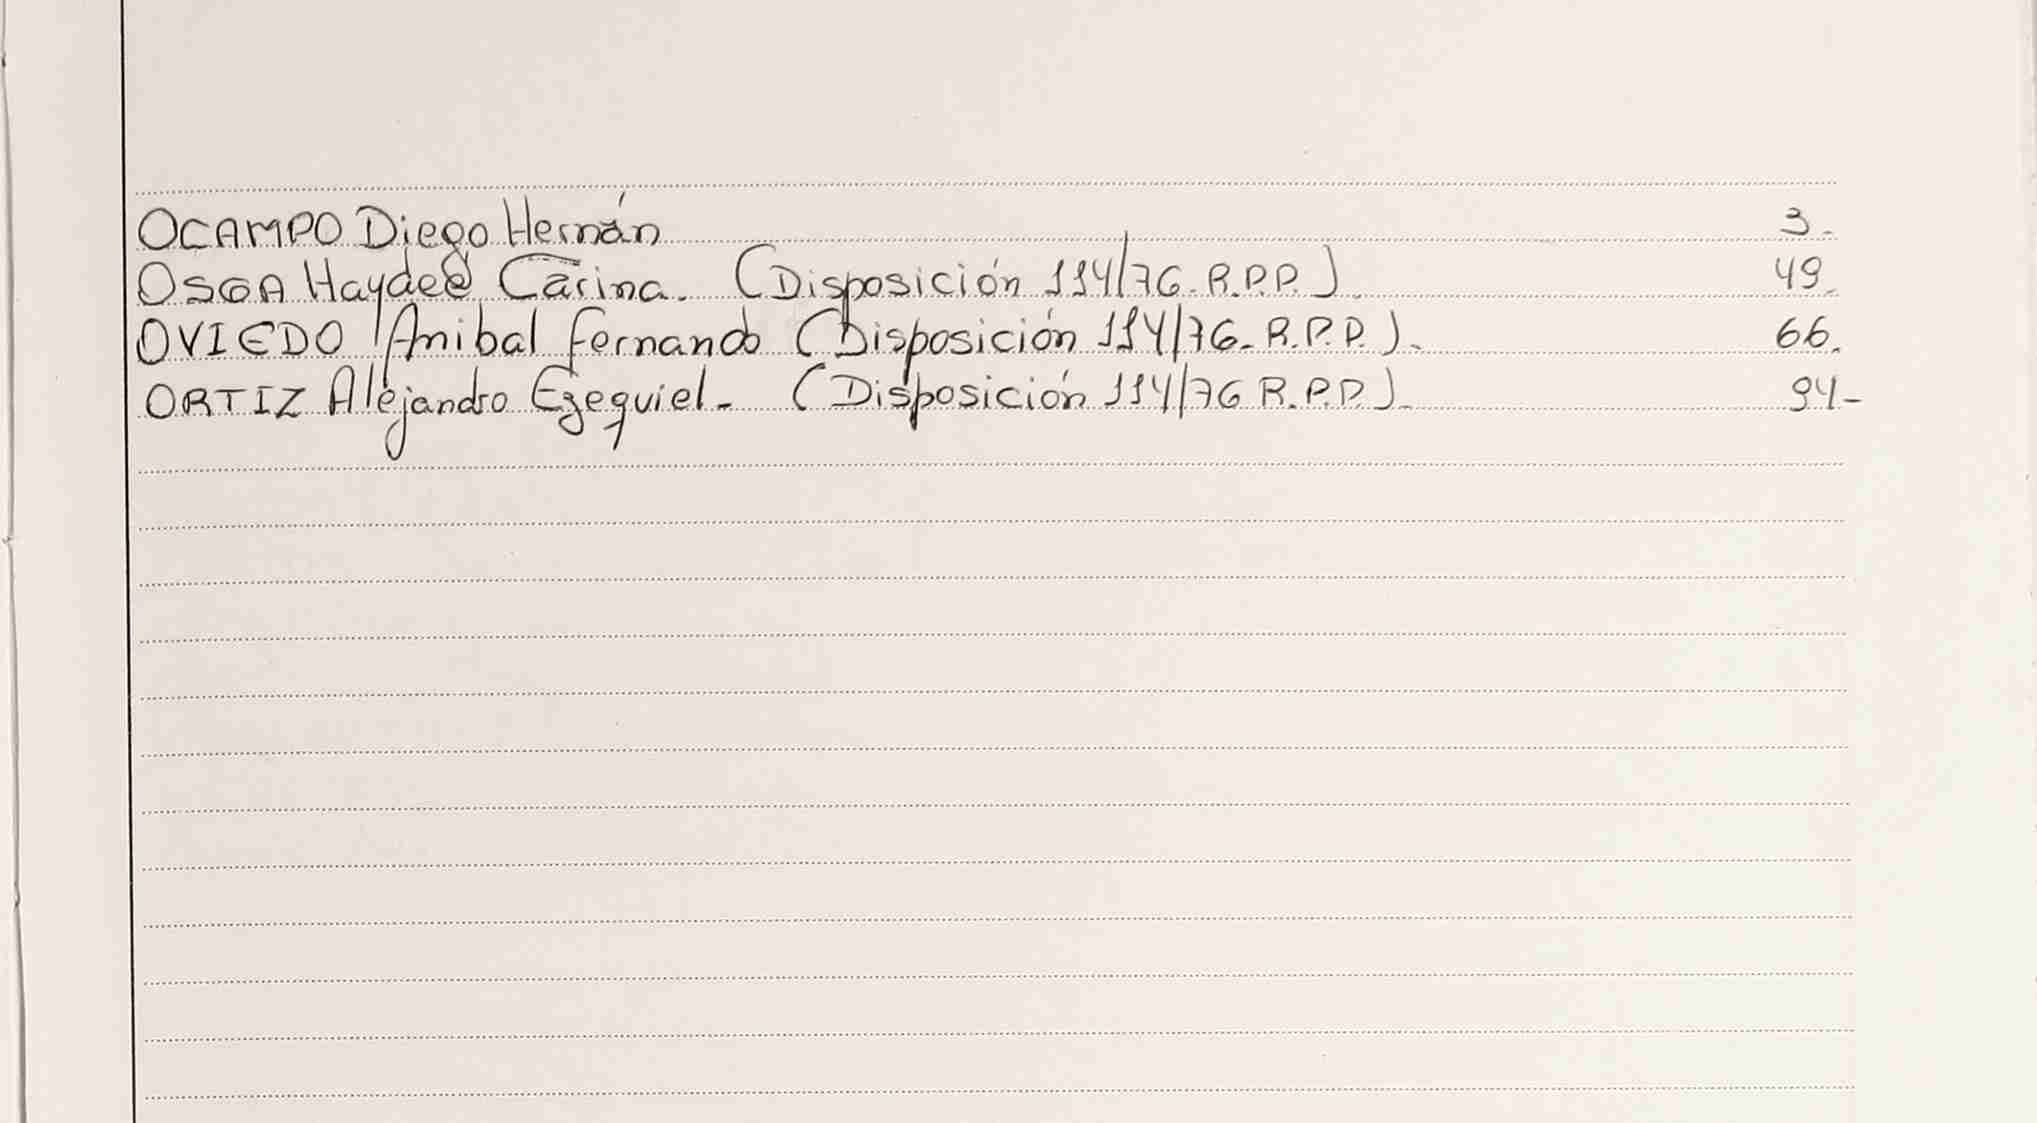 OCAMPO Diego Hernán 3.
OSGA Haydeé Carina. (Disposición 114/76. R.P.P.). 49.
OVIEDO Anibal Fernando (Disposición 114/76. R.P.P.). 66.
ORTIZ Alejandro Ezequiel. (Disposición 114/76 R.P.P.). 94-